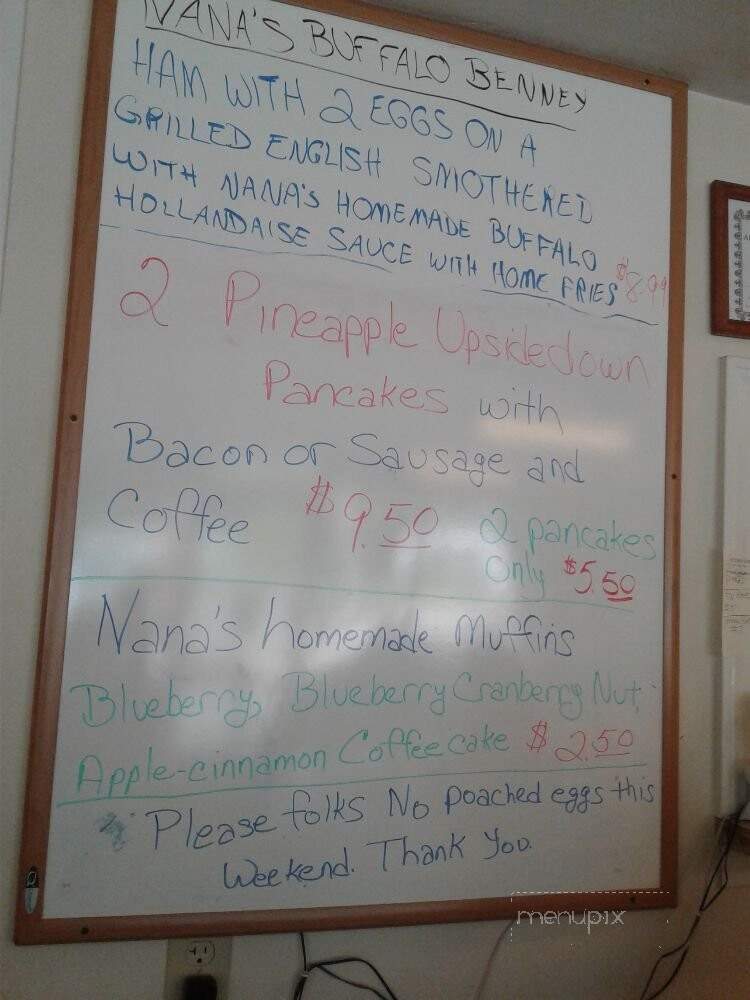 NANA'S BUFFALO BENNEY
HAM WITH 2 EGGS ON A
GRILLED ENGLISH SMOTHERED
WITH NANA'S HOMEMADE BUFFALO
HOLLANDAISE SAUCE WITH HOME FRIES $8.99
2 Pineapple Upsidedown
Pancakes with
Bacon or Sausage and
Coffee $9.50 2 pancakes
only $5.50
Nana's homemade Muffins
Blueberry, Blueberry Cranberry Nut,
Apple-cinnamon Coffee cake $2.50
Please folks No poached eggs this
Weekend. Thank You.
menupix